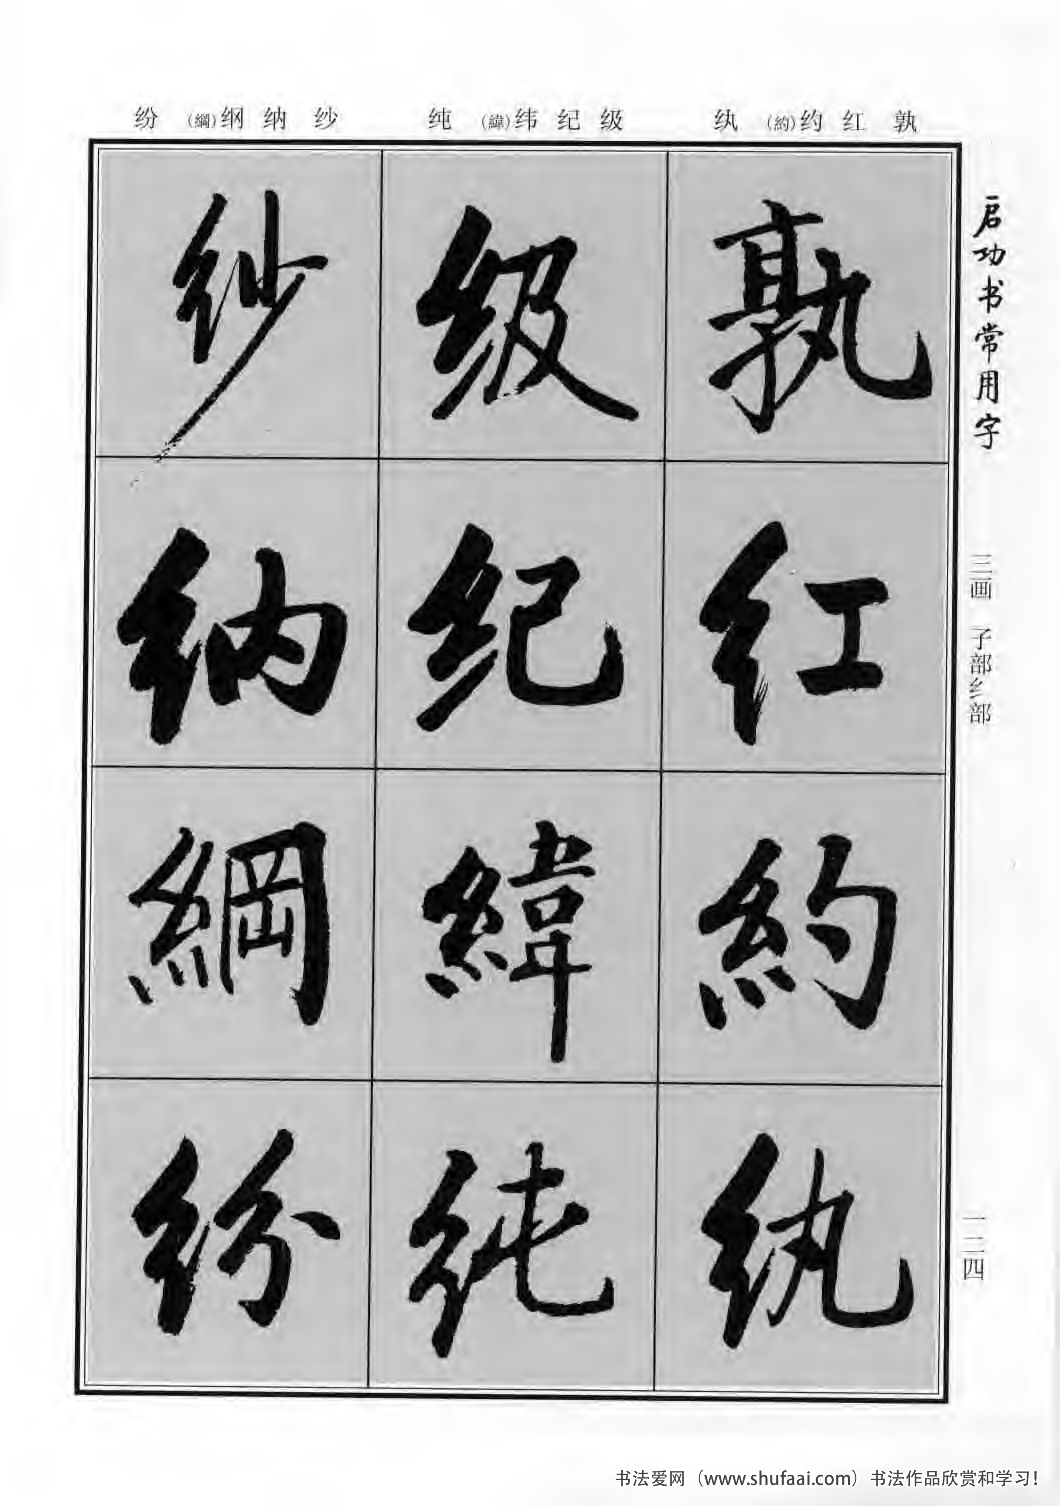 孰 红 约(約) 纨
级 纪 纬(緯) 纯
纱 纳 纲(綱) 纷
启功书常用字
三画 子部纟部
一二四
孰
红
約
纨
级
纪
緯
纯
纱
纳
綱
纷
书法爱网（www.shufaai.com）书法作品欣赏和学习！